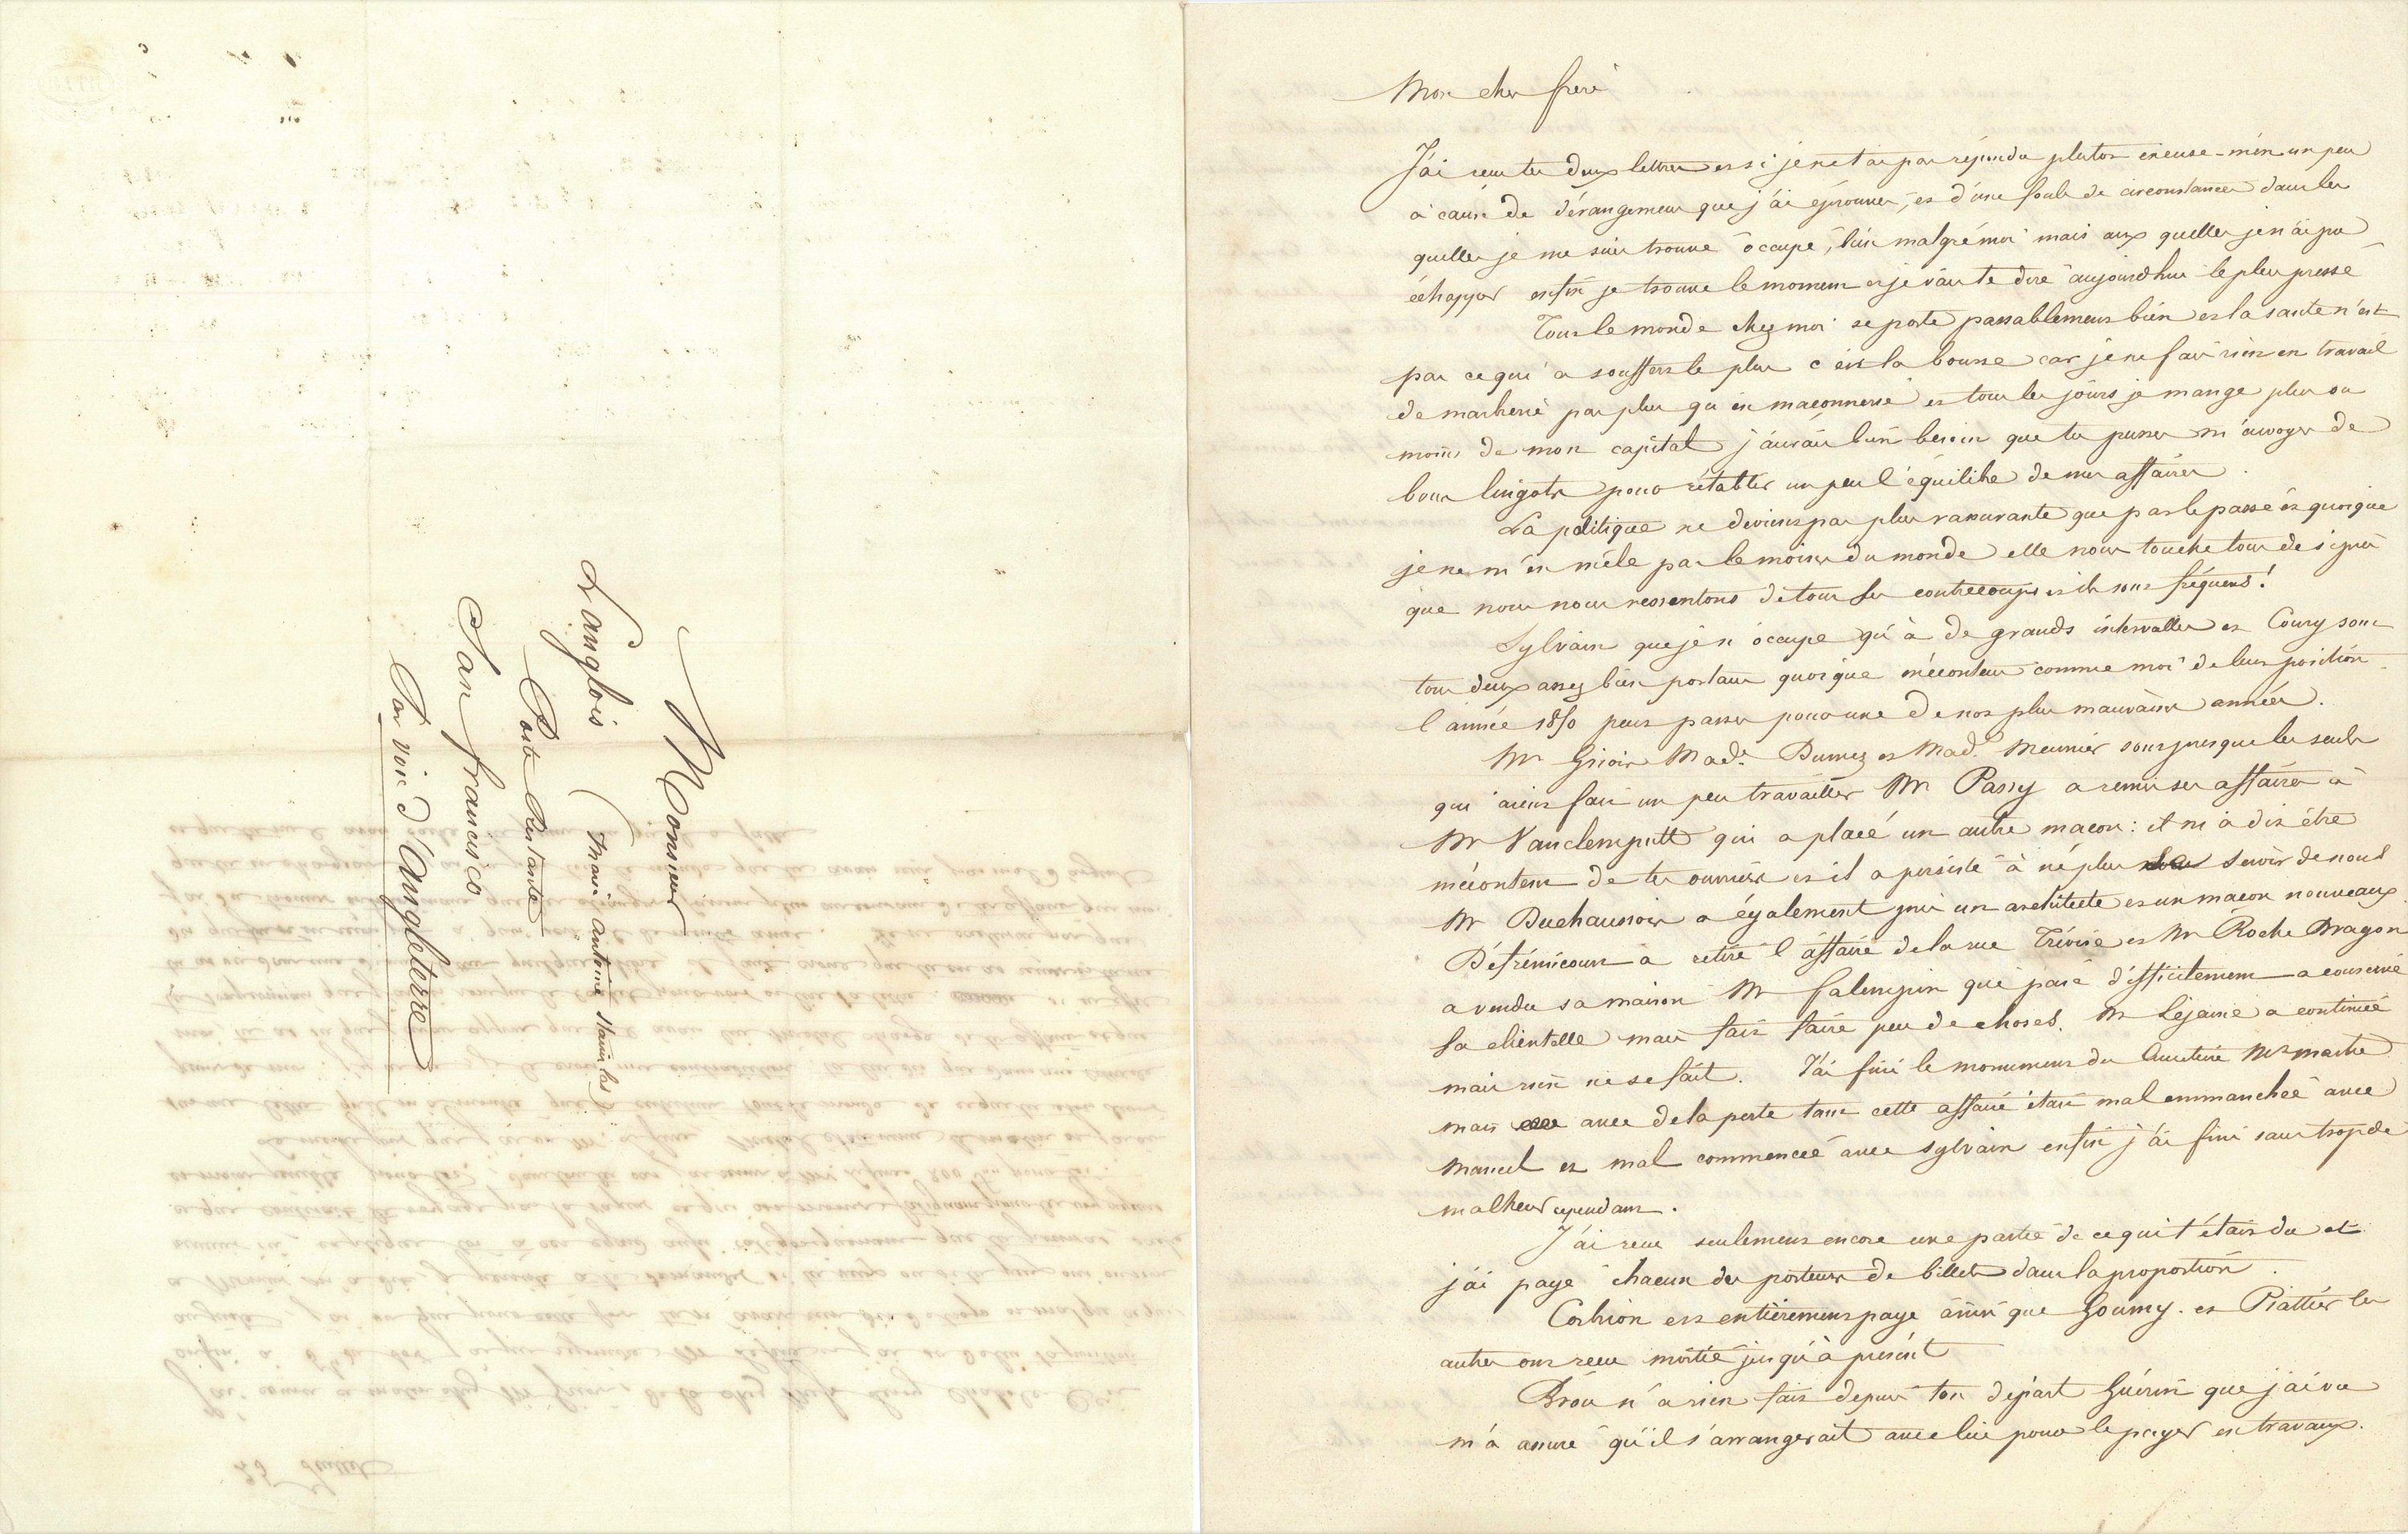 Monsieur
Langlois (Marie Antoine Stanislas)
Poste Restante
San francisco
Par voie d'Angleterre
Mon cher frère
J'ai reçu tes deux lettres et si je ne t'ai pas répondu plutot excuse-m'en un peu
à cause de dérangemens que j'ai éprouvés, et d'une foule de circonstances dans les
quelles je me suis trouvé occupé, bien malgré moi mais aux quelles je n'ai pu
échapper enfin je trouve le moment et je vais te dire aujourd'hui le plus pressé
Tout le monde chez moi se porte passablement bien et la santé n'est
pas ce qui a souffert le plus c'est la bourse car je ne fais rien en travail
de marbrerie pas plus qu'en maconnerie et tous les jours je mange plus ou
moins de mon capital j'aurais bien besoin que tu puisses m'envoyer de
bons lingots pour rétablir un peu l'équilibre de mes affaires
La politique ne devient pas plus rassurante que par le passé et quoique
je ne m'en mêle pas le moins du monde elle nous touche tous de si près
que nous nous ressentons de tous ses contrecoups et ils sont fréquens!
Sylvain que je n'occupe qu'à de grands intervalles et Coury sont
tous deux assez bien portans quoique mécontens comme moi de leur position
l'année 1850 peut passer pour une de nos plus mauvaises années.
Mr Grioir Made. Dumez et Made. Meunier sont presque les seuls
qui aient fait un peu travailler Mr Passy a remis ses affaires à
Mr Vanclemputt qui a placé un autre macon: il m'a dit être
mécontent de tes ouvriers et il a persisté à ne plus servir de nous
Mr Duchaussoir a également pris un architecte et un macon nouveaux.
Défrémicourt a retiré l'affaire de la rue Trévise et Mr Roche Dragon
a vendu sa maison Mr Galempin qui paie difficilement a conservé
sa clientelle mais fait faire peu de choses. Mr Lejeune a continué
mais rien ne se fait. J'ai fini le monument du Cimetière Mtmartre
mais avec de la perte tant cette affaire était mal emmanchée avec
Mancel et mal commencée avec Sylvain enfin j'ai fini sans trop de
malheur cependant.
J'ai reçu seulement encore une partie de ce qui t'était du et
j'ai payé chacun des porteurs de billets dans la proportion.
Corbion est entièrement payé ainsi que Goumy. et Piattier les
autres ont reçu moitié jusqu'à présent
Brou n'a rien fait depuis ton départ Guérin que j'ai vu
m'a assuré qu'il s'arrangerait avec lui pour le payer en travaux.